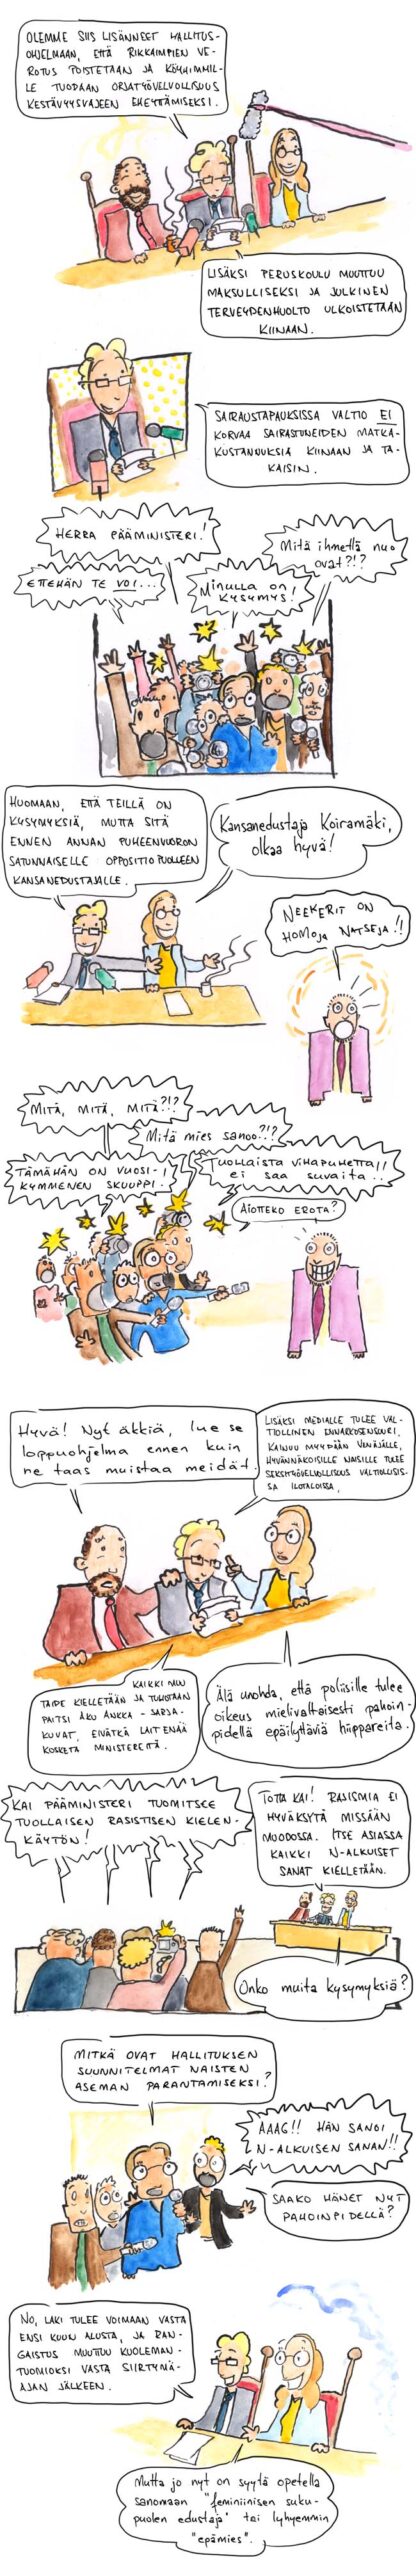 OLEMME SIIS LISÄNNEET HALLITUS-
OHJELMAAN, ETTÄ RIKKAIMPIEN VE-
ROTUS POISTETAAN JA KÖYHIMMIL-
LE TUODAAN ORJATYÖVELVOLLISUUS
KESTÄVYYSVAJEEN EHEYTTÄMISEKSI.
LISÄKSI PERUSKOULU MUUTTUU
MAKSULLISEKSI JA JULKINEN
TERVEYDENHUOLTO ULKOISTETAAN
KIINAAN.
SAIRAUSTAPAUKSISSA VALTIO EI
KORVAA SAIRASTUNEIDEN MATKA-
KUSTANNUKSIA KIINAAN JA TA-
KAISIN.
HERRA PÄÄMINISTERI!
Mitä ihmettä nuo
ovat?!?
ETTEHÄN TE VOI...
Minulla on
KYSYMYS!
HUOMAAN, ETTÄ TEILLÄ ON
KYSYMYKSIÄ, MUTTA SITÄ
ENNEN ANNAN PUHEENVUORON
SATUNNAISELLE OPPOSITIOPUOLUEEN
KANSANEDUSTAJALLE.
Kansanedustaja Koiramäki,
olkaa hyvä!
NEEKERIT ON
HOMOJA NATSEJA!!
MITÄ, MITÄ, MITÄ?!?
Mitä mies sanoo?!?
TÄMÄHÄN ON VUOSI-
KYMMENEN SKUUPPI!
TUOLLAISTA VIHAPUHETTA!!
ei saa suvaita..
AIOTTEKO EROTA?
Hyvä! Nyt äkkiä, lue se
loppuohjelma ennen kuin
ne taas muistaa meidät.
LISÄKSI MEDIALLE TULEE VAL-
TIOLLINEN ENNAKKOSENSUURI,
KAINUU MYYDÄÄN VENÄJÄLLE,
HYVÄNNÄKÖISILLE NAISILLE TULEE
SEKSITYÖVELVOLLISUUS VALTIOLLISIS-
SA ILOTALOISSA,
KAIKKI MUU
TAIDE KIELLETÄÄN JA TUHOTAAN
PAITSI AKU ANKKA -SARJA-
KUVAT, EIVÄTKÄ LAIT ENÄÄ
KOSKETA MINISTEREITÄ.
Älä unohda, että poliisille tulee
oikeus mielivaltaisesti pahoin-
pidellä epäilyttäviä hiippareita.
KAI PÄÄMINISTERI TUOMITSEE
TUOLLAISEN RASISTISEN KIELEN-
KÄYTÖN!
TOTTA KAI! RASISMIA EI
HYVÄKSYTÄ MISSÄÄN
MUODOSSA. ITSE ASIASSA
KAIKKI N-ALKUISET
SANAT KIELLETÄÄN.
Onko muita kysymyksiä?
MITKÄ OVAT HALLITUKSEN
SUUNNITELMAT NAISTEN
ASEMAN PARANTAMISEKSI?
AAAG!! HÄN SANOI
N-ALKUISEN SANAN!!
SAAKO HÄNET NYT
PAHOINPIDELLÄ?
NO, LAKI TULEE VOIMAAN VASTA
ENSI KUUN ALUSTA, JA RAN-
GAISTUS MUUTTUU KUOLEMAN-
TUOMIOKSI VASTA SIIRTYMÄ-
AJAN JÄLKEEN.
Mutta jo nyt on syytä opetella
sanomaan "feminiinisen suku-
puolen edustaja" tai lyhyemmin
"epämies".